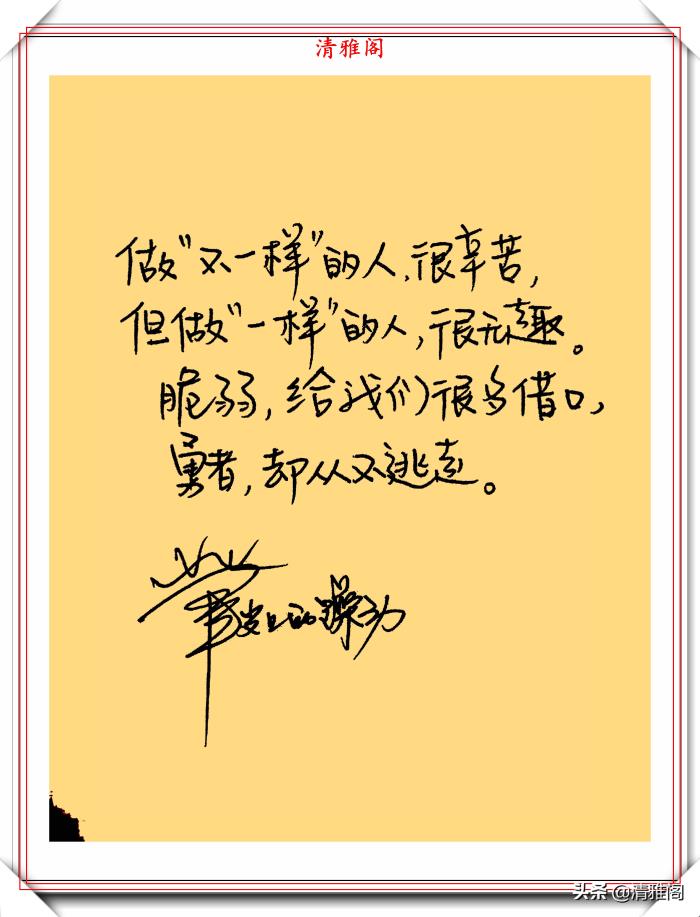 清雅阁
做"不一样"的人，很辛苦，
但做"一样"的人，很无趣。
脆弱，给我们很多借口，
勇者，却从不逃走。
躁动
头条@清雅阁